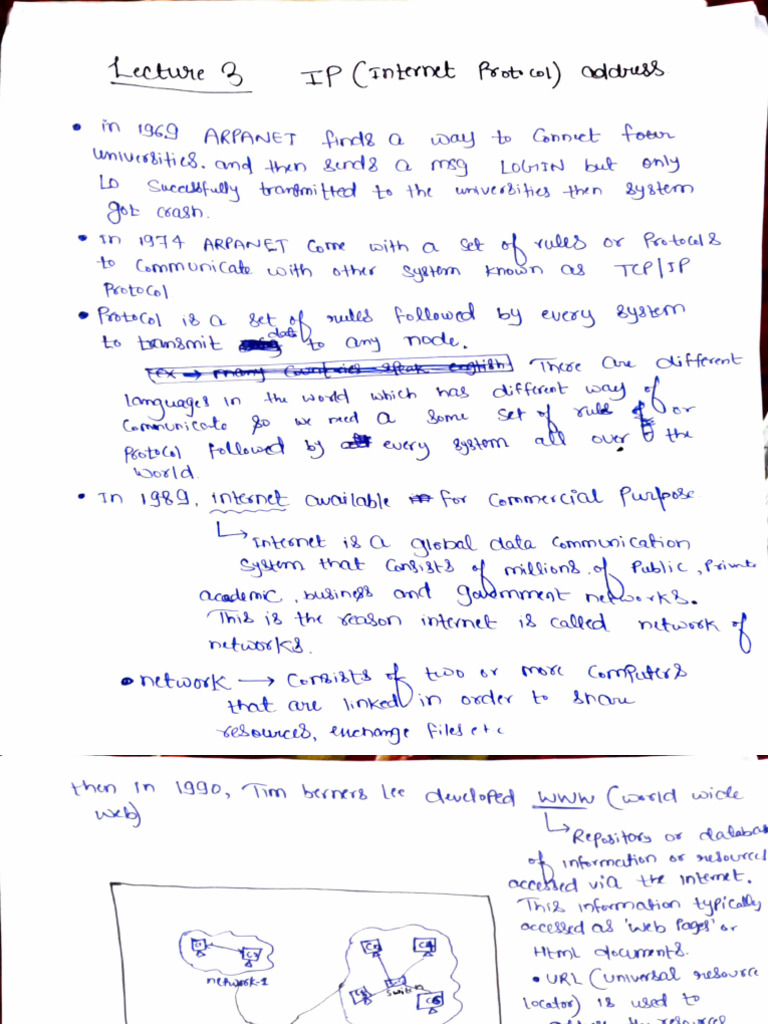 Lecture 3 IP (Internet Protocol) address
• in 1969 ARPANET finds a way to connect four
universities. and then sends a msg LOGIN but only
LO successfully transmitted to the universities then system
got crash.
• In 1974 ARPANET come with a set of rules or Protocols
to communicate with other system known as TCP/IP
Protocol
• Protocol is a set of rules followed by every system
to transmit data to any node.
Ex → many countries speak english There are different
languages in the world which has different way of
communicate so we need a some set of rule or
protocol followed by every system all over the
world.
• In 1989, internet available for commercial Purpose
↳ Internet is a global data communication
system that consists of millions of Public, Private
academic, business and government networks.
This is the reason internet is called network of
networks.
• network → consists of two or more computers
that are linked in order to share
resources, exchange files etc
then in 1990, Tim berners lee developed WWW (world wide
web)
↳ Repository or databas
of information or resources
accessed via the internet.
This information typically
accessed as 'web pages' or
Html documents.
• URL (universal resource
locator) is used to
network-1
switch
C3
C4